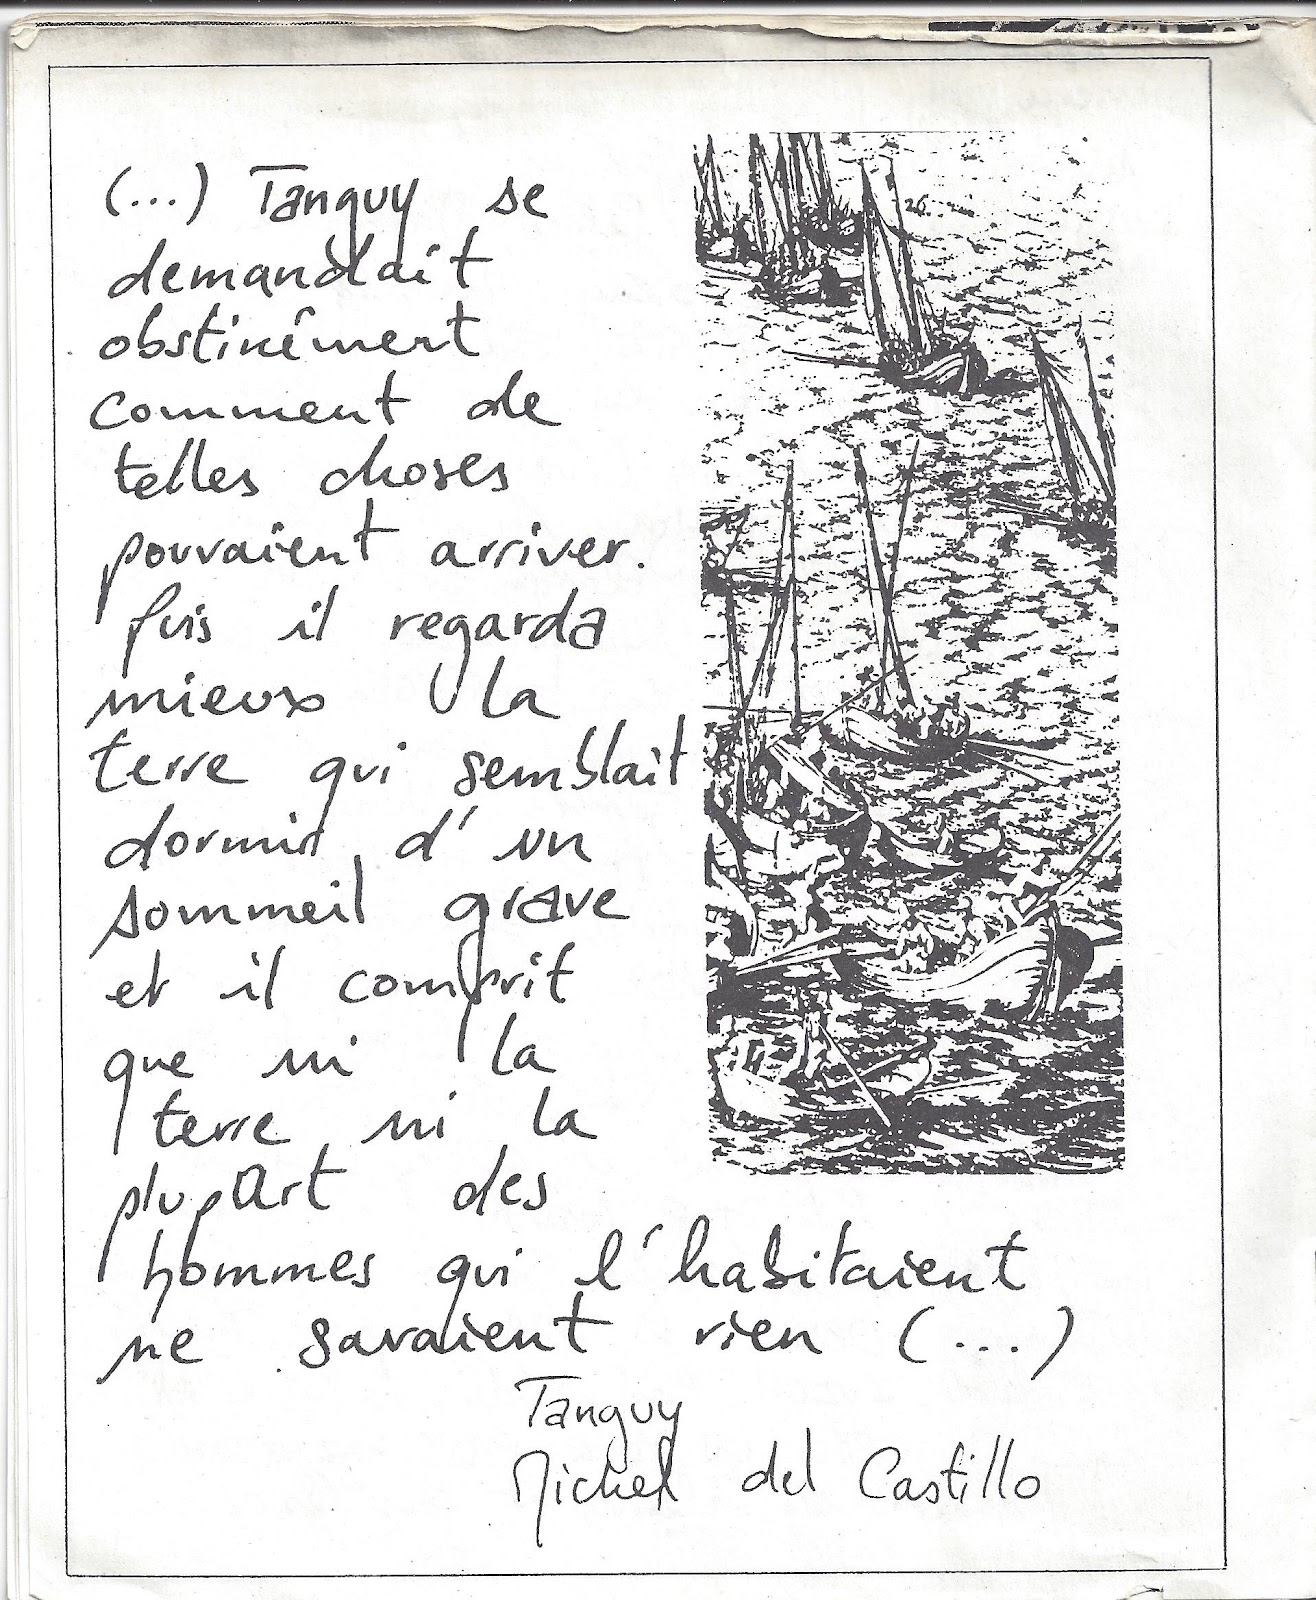 (...) Tanguy se
demandait
obstinément
comment de
telles choses
pouvaient arriver.
Puis il regarda
mieux la
terre qui semblait
dormir d'un
sommeil grave
et il comprit
que ni la
terre ni la
plupart des
hommes qui l'habitaient
ne savaient rien (...)
Tanguy
Michel del Castillo
26